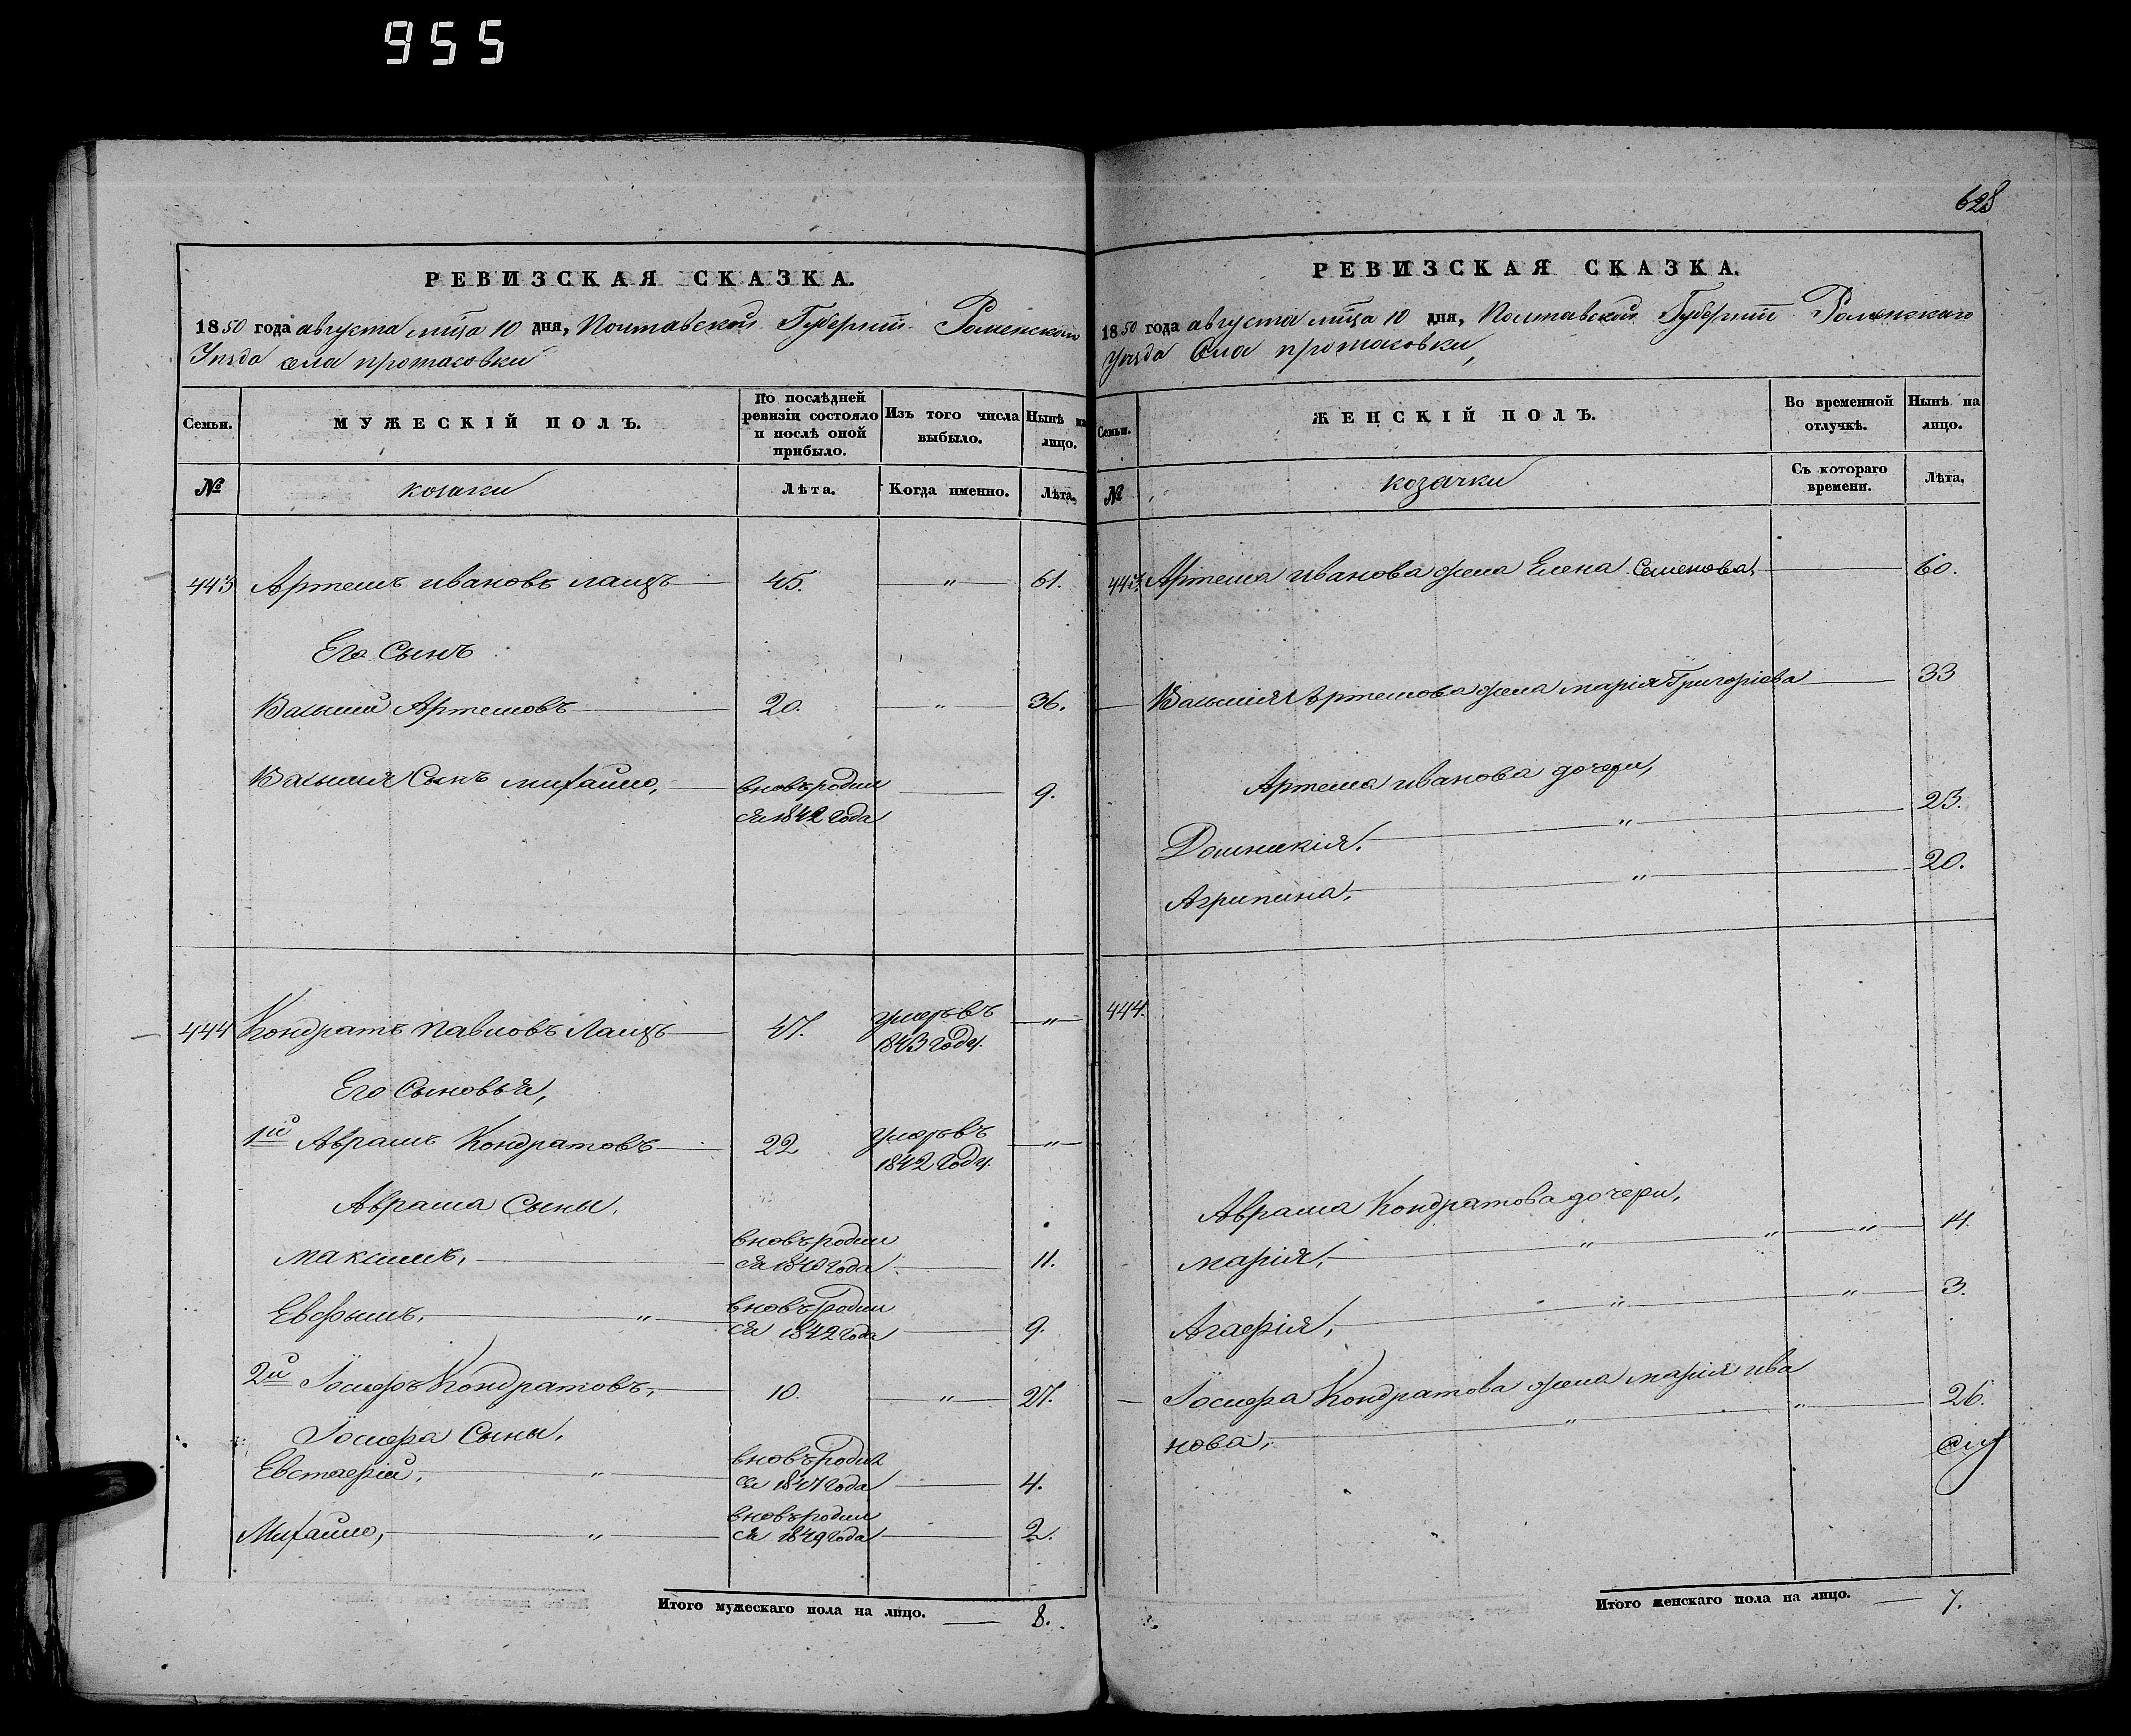 955
628
РЕВИЗСКАЯ СКАЗКА.
1850 года августа мца 10 дня, Полтавской Губернии Роменского
Уезда села протасовки
Семьи. МУЖЕСКІЙ ПОЛЪ. По послѣдней ревизіи состояло и послѣ оной прибыло. Изъ того числа выбыло. Нынѣ на лицо.
№ козаки Лѣта. Когда именно. Лѣта.
443 Артемъ ивановъ 45. " 61.
Его Сынъ
Василий Артемовъ 20. " 36.
Василия Сынъ михайло, вновь родил
ся 1842 года 9.
444 Кондратъ павловъ 47. умеръ въ
1843 году. "
Его Сыновья,
1й Аврамъ Кондратовъ 22 умеръ въ
1842 году. "
Аврама Сыны,
максимъ, вновь родил
ся 1840 года 11.
Евфимъ, " вновь родил
ся 1842 года 9.
2й Іосифъ Кондратовъ, 10. " 27.
Іосифа Сыны,
Евстафій, " вновь родил
ся 1847 года 4.
Михайло, " вновь родил
ся 1849 года 2.
Итого мужескаго пола на лицо. 8.
РЕВИЗСКАЯ СКАЗКА.
1850 года августа мца 10 дня, Полтавской Губернии Роменскаго
уезда Села протасовки,
Семьи. ЖЕНСКІЙ ПОЛЪ. Во временной отлучкѣ. Нынѣ на лицо.
№ козачки Съ котораго времени. Лѣта.
443. Артема иванова жена Елена Семенова, 60.
Василия Артемова жена марія Григоріева 33
Артема иванова дочери,
Домникія, " 23.
Агрипина, " 20.
444.
Аврама Кондратова дочери,
марія, " " " 14.
Агафія, " " 3.
Іосифа Кондратова жена марія ива
нова, " " 26.
Итого женскаго пола на лицо. 7.